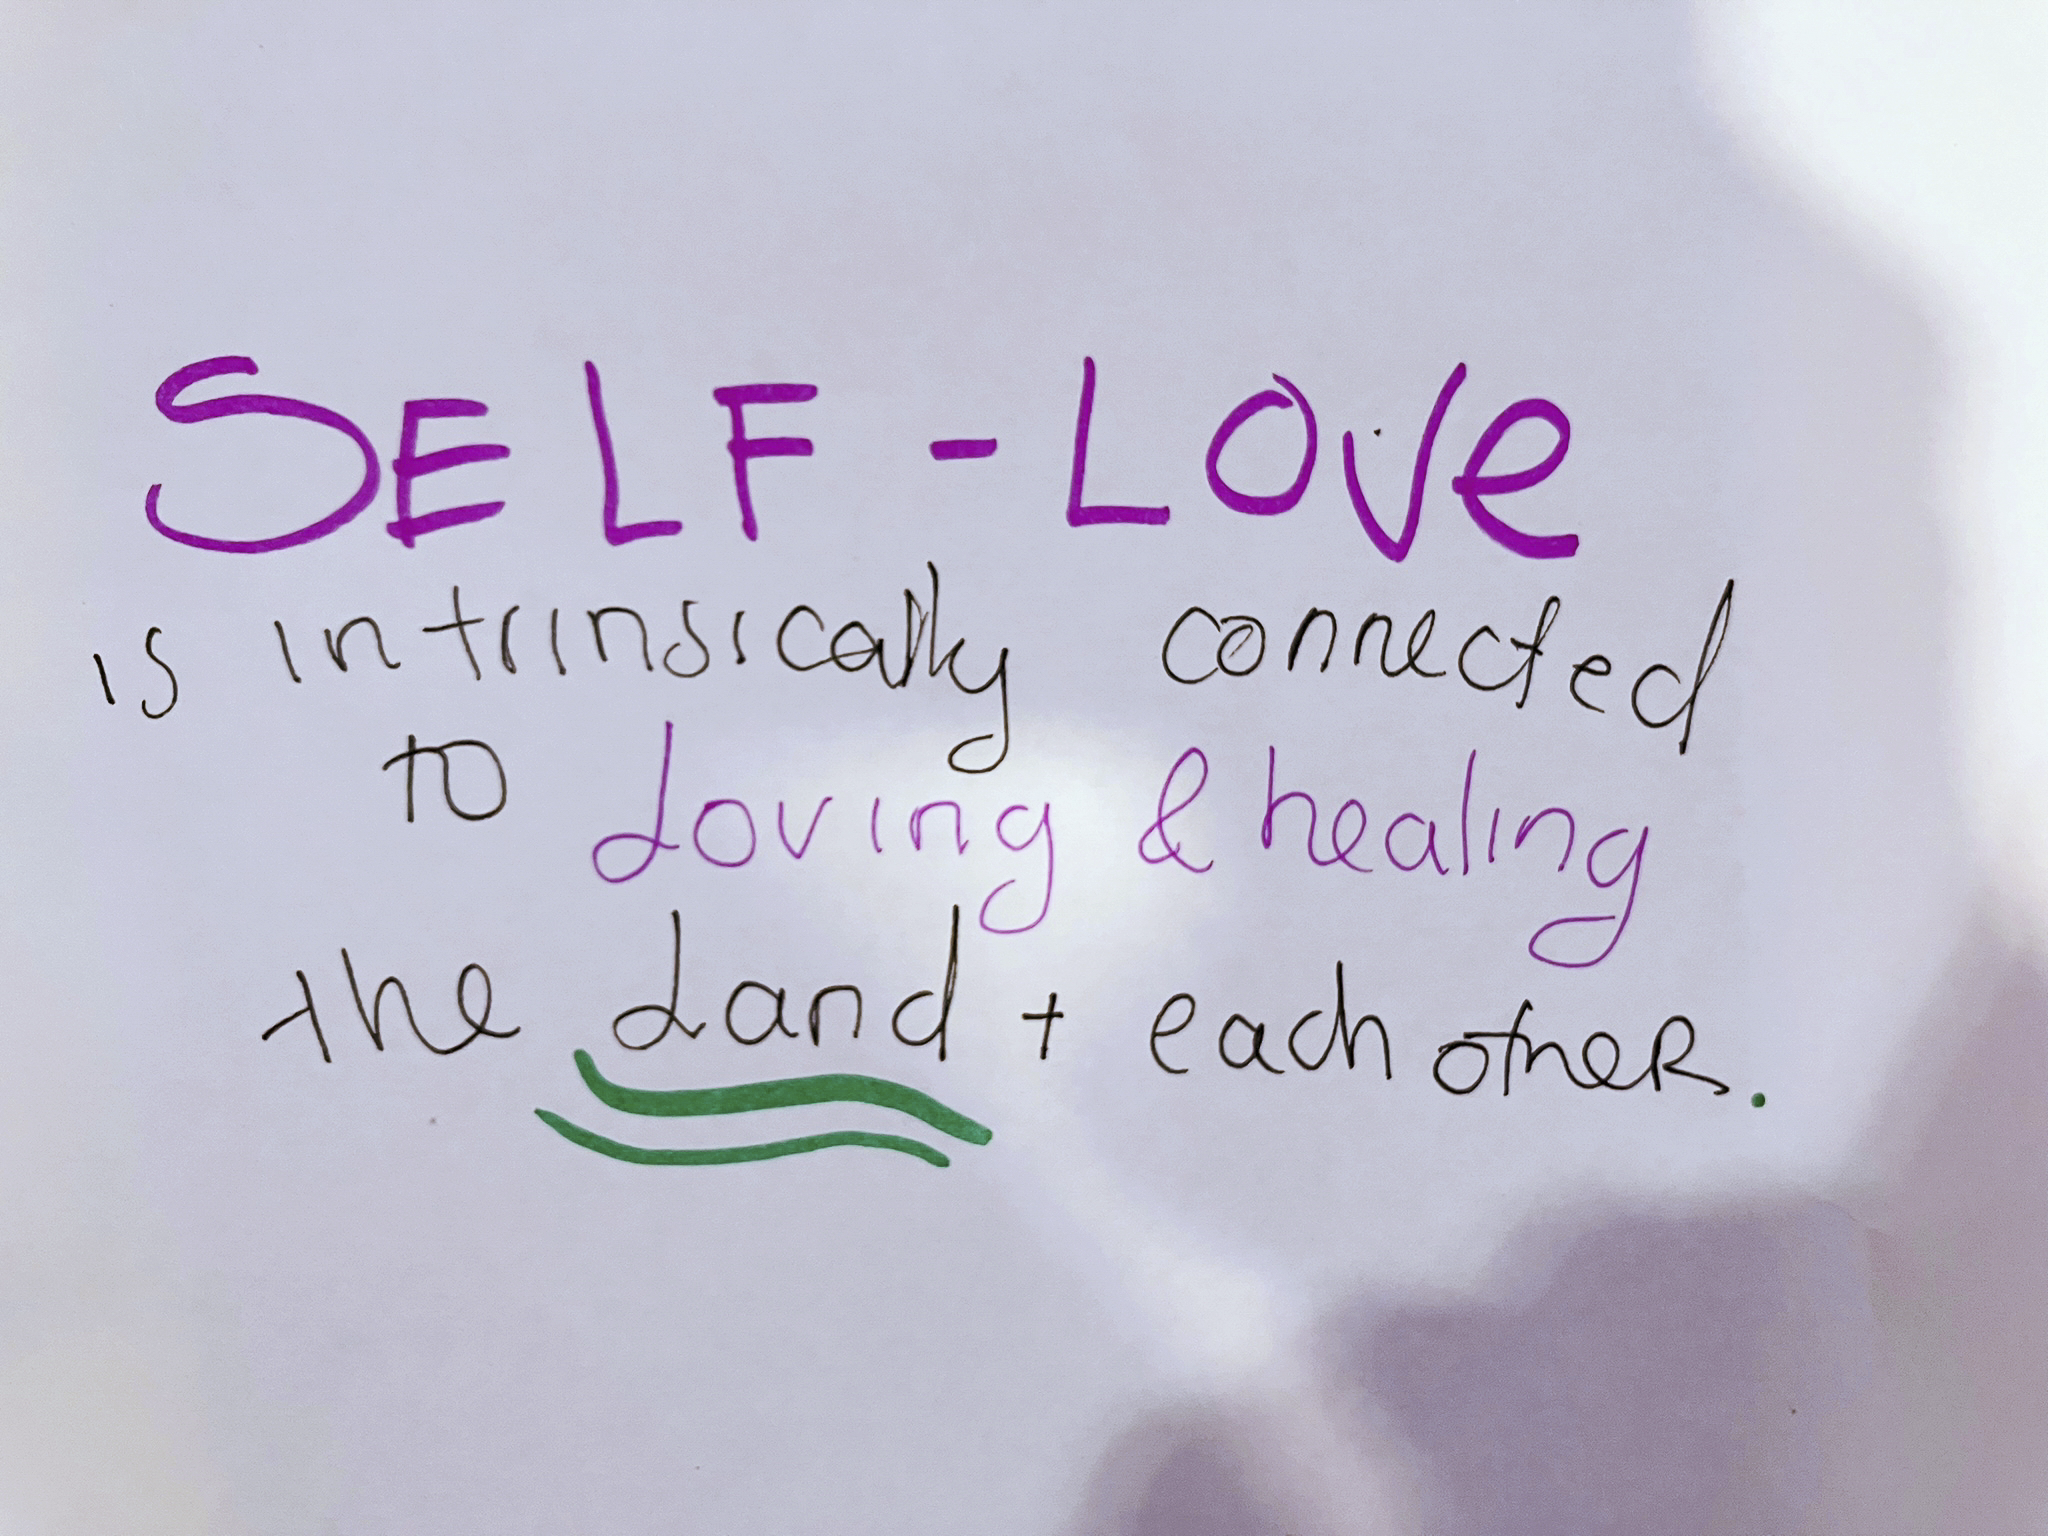 SELF-LOVe
is intrinsically connected
to Loving & healing
the Land + each otheR.